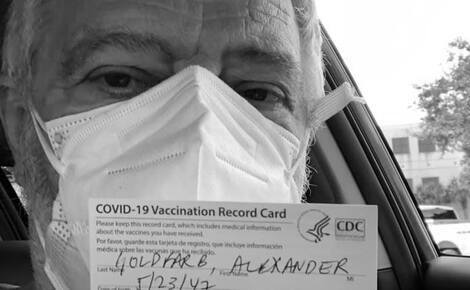 COVID-19 Vaccination Record Card
Please keep this record card, which includes medical information
about the vaccines you have received.
Por favor, guarde esta tarjeta de registro, que incluye información
médica sobre las vacunas que ha recibido.
CDC
GOLDFARB, ALEXANDER
Last Name First Name MI
5/23/47
Date of birth